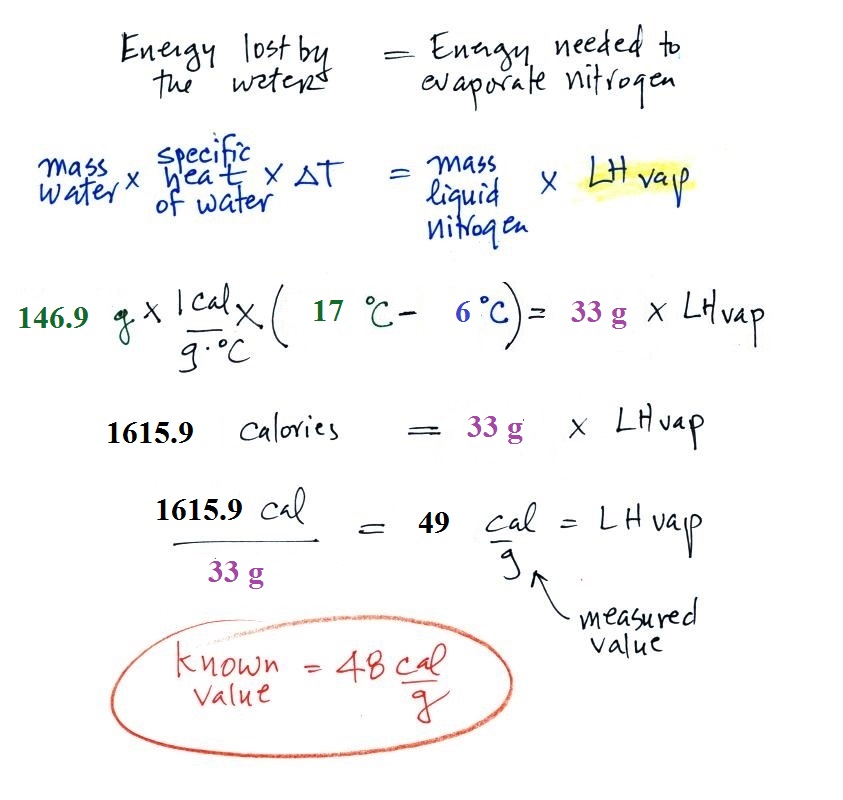 Energy lost by the water = Energy needed to evaporate nitrogen
mass water x specific heat of water x ΔT = mass liquid nitrogen x LH vap
146.9 g x 1 cal/g·°C x ( 17 °C - 6 °C) = 33 g x LHvap
1615.9 calories = 33 g x LHvap
1615.9 cal / 33 g = 49 cal/g = LH vap
measured value
known value = 48 cal/g